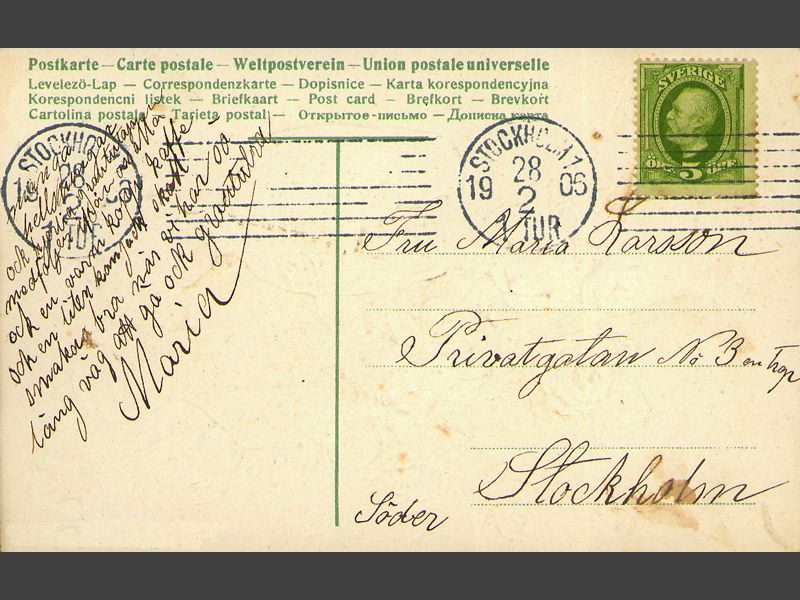 Postkarte — Carte postale — Weltpostverein — Union postale universelle
Levelező-Lap — Correspondenzkarte — Dopisnice — Karta korespondencyjna
Korespondencni listek — Briefkaart — Post card — Brefkort — Brevkort
Cartolina postale — Tarjeta postal — Открытое письмо — Дописна карта
SVERIGE
ÖRE 5 ÖRE
STOCKHOLM 1
28
19 2 05
TUR
STOCKHOLM
28
19 2 05
1 TUR
och
medföljer
och en varm kopp kaffe
och en liten kan
smakar bra när vi har så
lång väg att gå och gratulera
Maria
Fru Maria Larsson
Privatgatan No 3 en trap
Stockholm
Söder